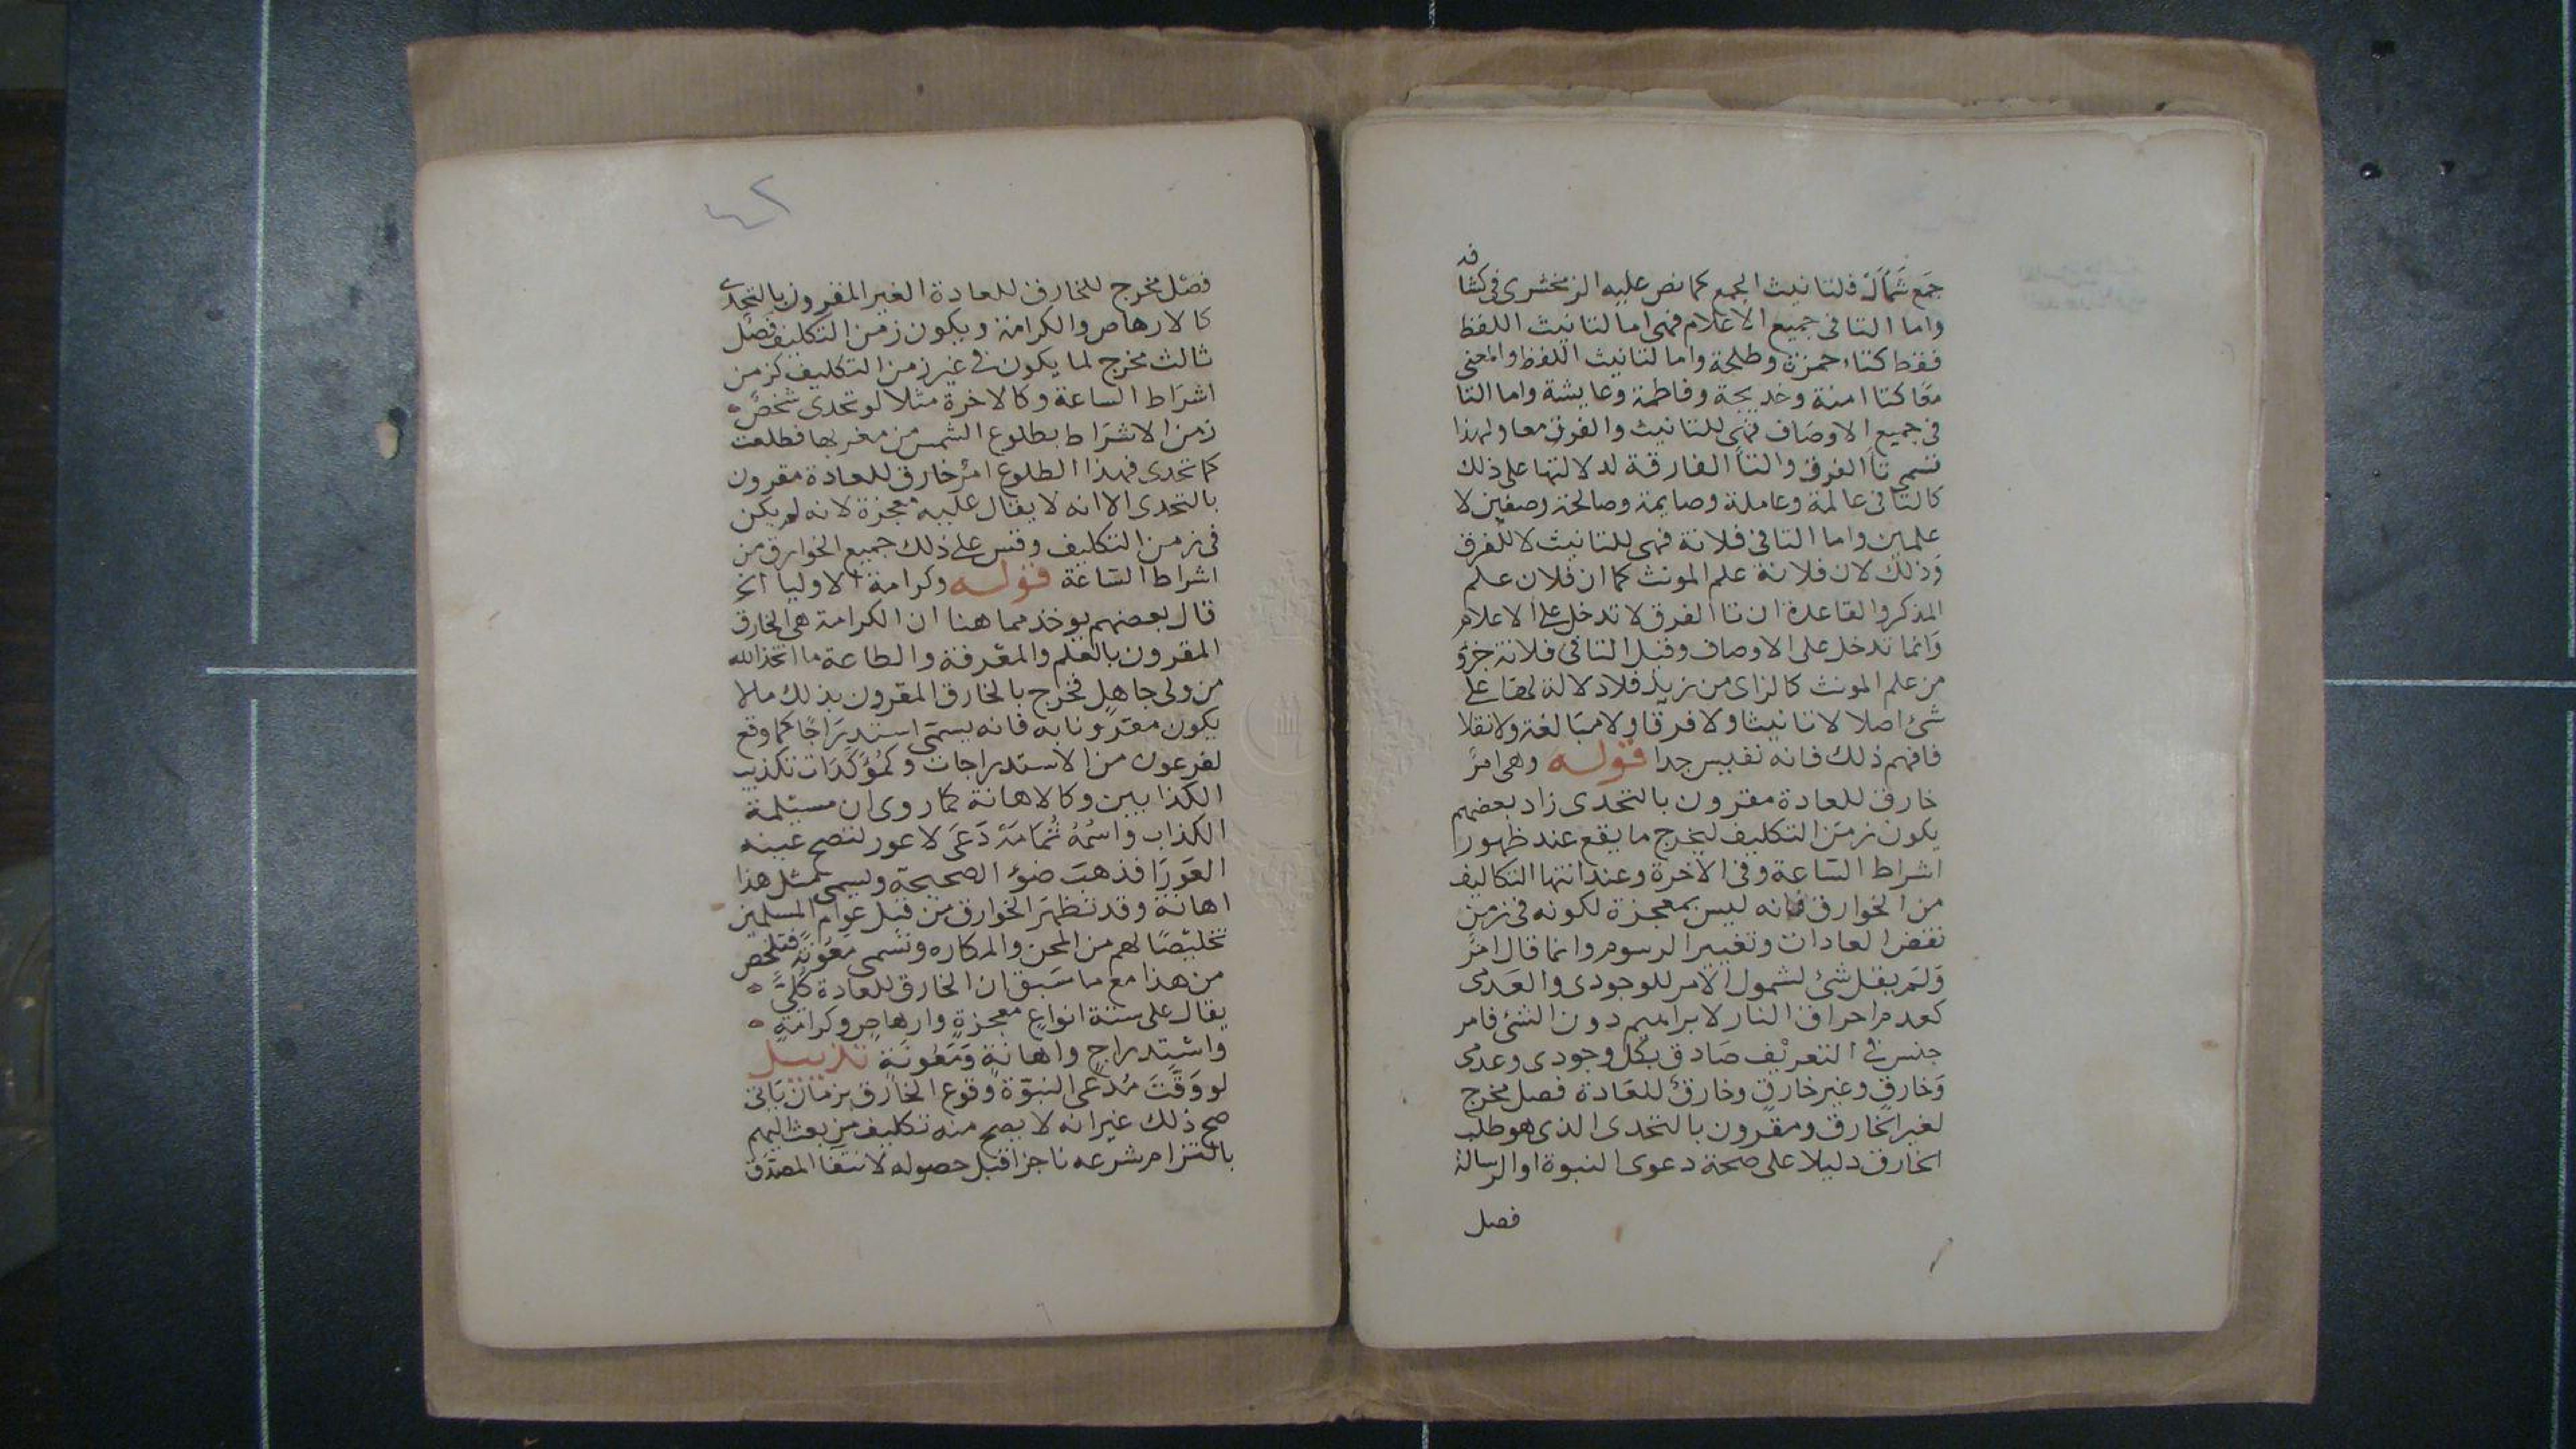 جمع شمأل فلتانيث الجمع كما نص عليه الزمخشرى فى كشافه
واما التا فى جميع الاعلام فهى اما لتانيث اللفظ
فقط كتاء حمزة وطلحة واما لتانيث اللفظ والمعنى
معًا كتا امنة وخديجة وفاطمة وعايشة واما التا
فى جميع الاوصاف فهى للتانيث والفرق معا ولهذا
تسمى تا الفرق والتا الفارقة لدلالتها على ذلك
كالتا فى عالمة وعاملة وصايمة وصالحة وصفين لا
علمين واما التا فى فلانة فهى للتانيث لا للفرق
وذلك لان فلانة علم المونث كما ان فلان علم
المذكر والقاعدة ان تا الفرق لا تدخل على الاعلام
وانما تدخل على الاوصاف وقيل التا فى فلانة جزؤ
من علم المونث كالزاى من زيد فلا دلالة لها على
شئ اصلا لا تانيثا ولا فرقا ولا مبالغة ولا نقلا
فافهم ذلك فانه نفيس جدا قوله وهى امرٌ
خارق للعادة مقرون بالتحدى زاد بعضهم
يكون زمن التكليف ليخرج ما يقع عند ظهور
اشراط الساعة وفى الاخرة وعند انتها التكاليف
من الخوارق فانه ليس بمعجزة لكونه فى زمن
نقض العادات وتغيير الرسوم وانما قال امرٌ
ولم يقل شئ لشمول الامر للوجودى والعدمى
كعدم احراق النار لابراهيم دون الشئ فامر
جنس فى التعريف صادق بكل وجودى وعدمى
وخارقٍ وغير خارقٍ وخارقٌ للعادة فصل مخرج
لغير الخارق ومقرون بالتحدى الذى هو طلب
الخارق دليلا على صحة دعوى النبوة او الرسالة
فصل
٤٢
فصل مخرج للخارق للعادة الغير المقرون بالتحدى
كالارهاص والكرامة ويكون زمن التكليف فصل
ثالث مخرج لما يكون فى غير زمن التكليف كزمن
اشراط الساعة وكالاخرة مثلا لو تحدى شخصٌ
زمن الاشراط بطلوع الشمس من مغربها فطلعت
كما تحدى فهذا الطلوع امرٌ خارق للعادة مقرون
بالتحدى الا انه لا يقال عليه معجزة لانه لم يكن
فى زمن التكليف وقس على ذلك جميع الخوارق من
اشراط الساعة قوله وكرامة الاوليا الخ
قال بعضهم يوخذ مما هنا ان الكرامة هى الخارق
المقرون بالعلم والمعرفة والطاعة ما اتخذ الله
من ولى جاهل فخرج بالخارق المقرون بذلك مالا
يكون مقرونا به فانه يسمى استدراجًا كما وقع
لفرعون من الاستدراجات وكمؤكدات تكذيب
الكذابين وكالاهانة كما روى ان مسيلمة
الكذاب واسمه ثمامة دعى لاعور لتصح عينه
العورا فذهب ضوء الصحيحة ويسمى مثل هذا
اهانة وقد تظهر الخوارق من قبل عوام المسلمين
تخليصًا لهم من المحن والمكاره وتسمى معونة فتلخص
من هذا مع ما سبق ان الخارق للعادة كلىٌّ
يقال على ستة انواع معجزةٍ وارهاصٍ وكرامةٍ
واستدراجٍ واهانةٍ ومعونةٍ تذييل
لو وقّت مدعى النبوة وقوع الخارق بزمان ياتى
صح ذلك غير انه لا يصح منه تكليف من بعث اليهم
بالتزام شرعه ناجزا قبل حصوله لانتفا المصدق